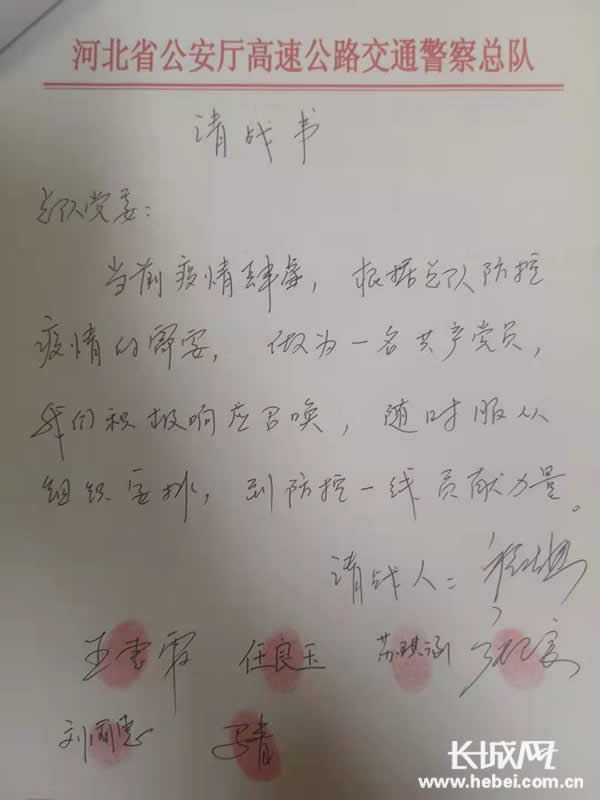 河北省公安厅高速公路交通警察总队
请战书
总队党委：
当前疫情肆虐，根据总队防控
疫情的需要，做为一名共产党员，
我们积极响应召唤，随时服从
组织安排，到防控一线贡献力量。
请战人：
任良玉 苏琪涵
马青
长城网
www.hebei.com.cn